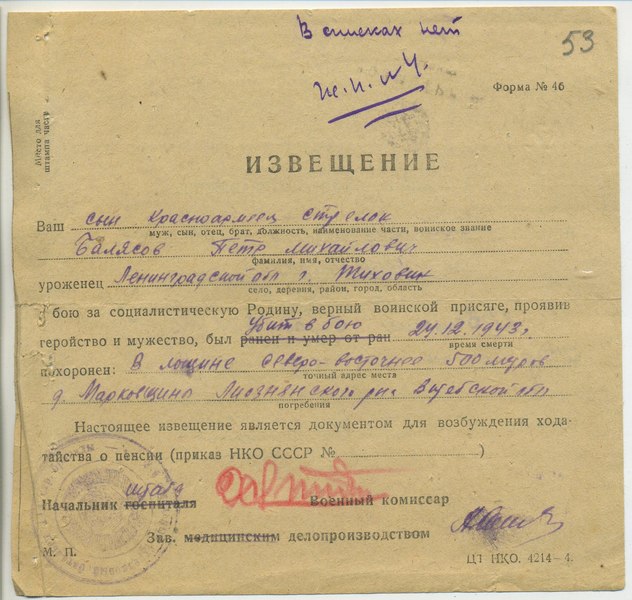 В списках нет
53
Форма № 46
Место для
штампа части
ИЗВЕЩЕНИЕ
Ваш сын красноармеец стрелок
муж, сын, отец, брат, должность, наименование части, воинское звание
Балясов Петр Михайлович
фамилия, имя, отчество
уроженец Ленинградской обл г. Тихвин
село, деревня, район, город, область
В бою за социалистическую Родину, верный воинской присяге, проявив
убит в бою
геройство и мужество, был ранен и умер от ран 24.12.1943г.
время смерти
похоронен: В лощине северо-восточнее 500 метров
точный адрес места
д. Марковщина Лиознянского р-на Витебской обл
погребения
Настоящее извещение является документом для возбуждения хода-
тайства о пенсии (приказ НКО СССР № )
штаба
Начальник госпиталя Военный комиссар
Зав. медицинским делопроизводством
М. П.
ЦТ НКО. 4214—4.